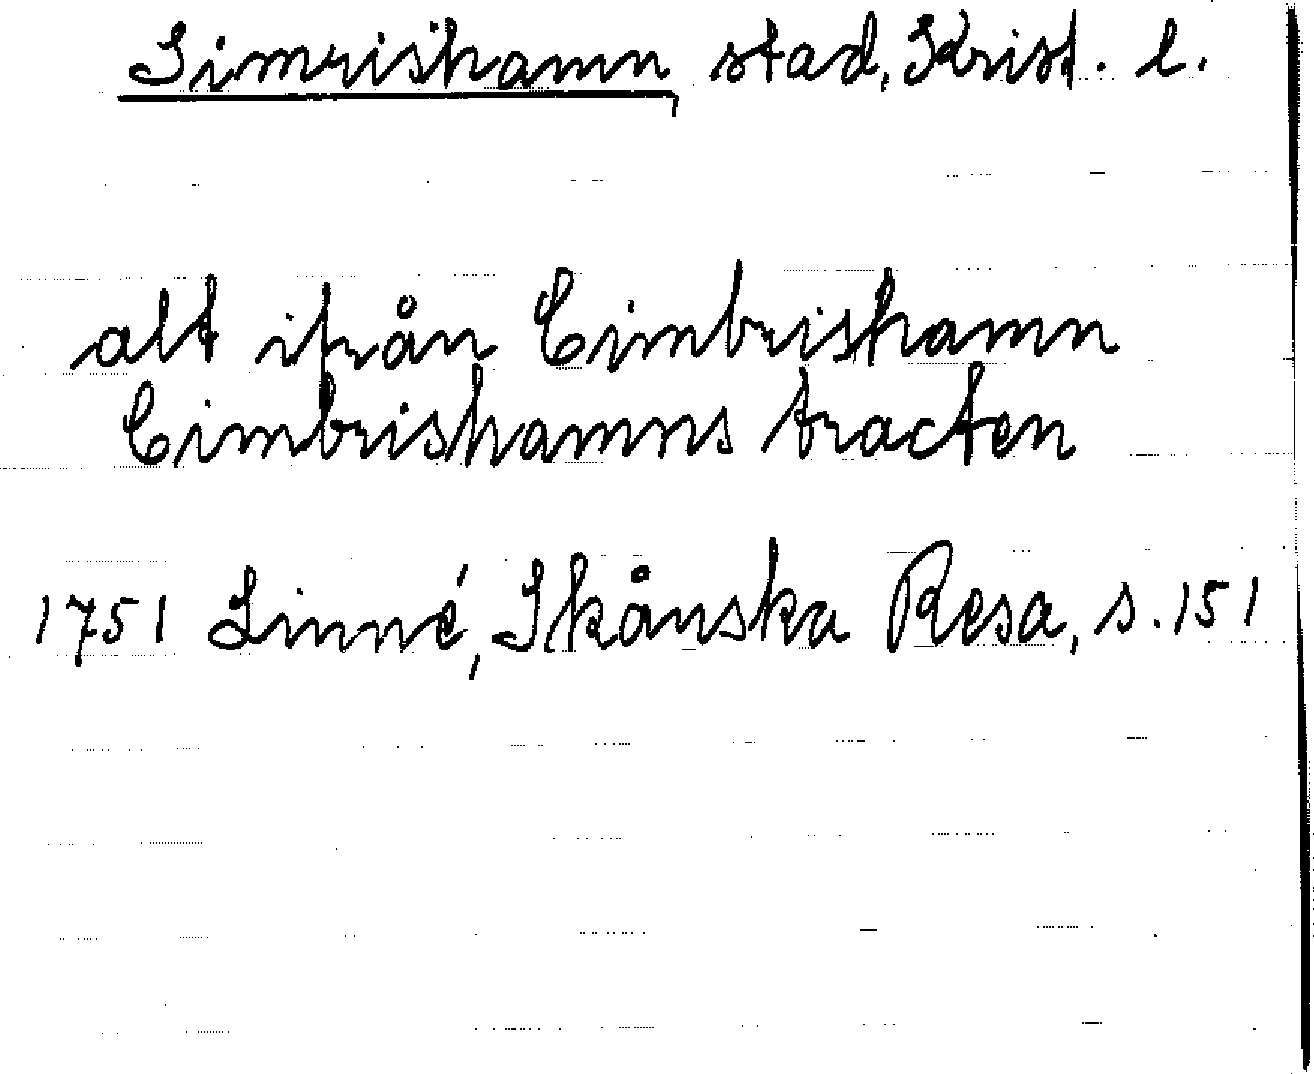 Simrishamn, stad, Krist. l.
alt ifrån Cimbrishamn
Cimbrishamns tracten
1751 Linné, Skånska Resa, s. 151